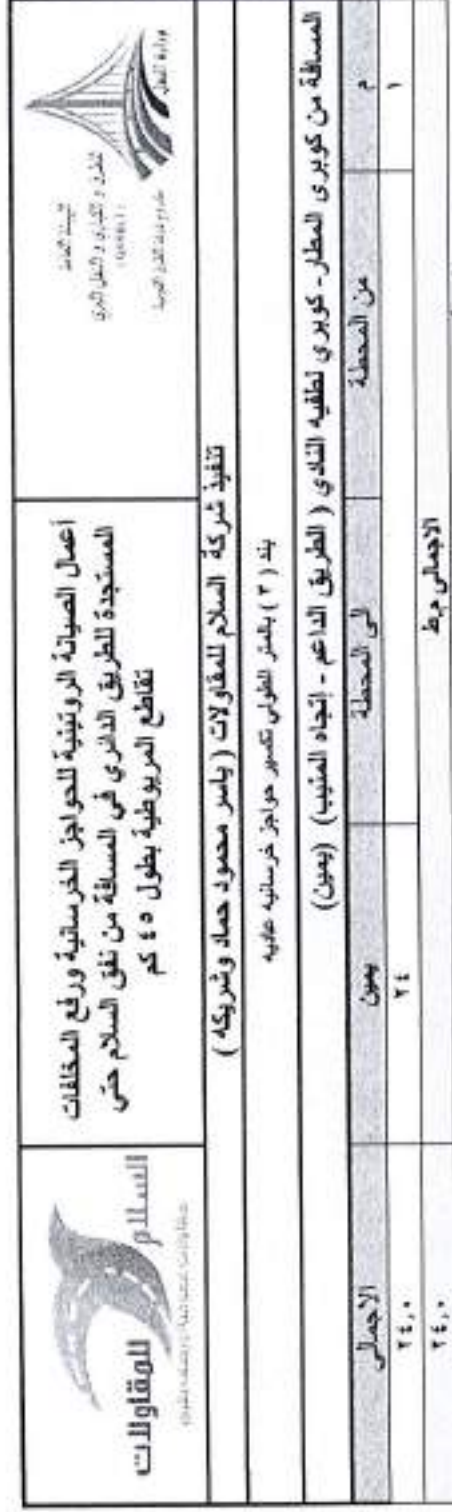 وزارة النقل
الهيئة العامة
للطرق و الكباري و النقل البري
(GARBLT)
أعمال الصيانة الروتينية للحواجز الخرسانية ورفع المخلفات
المستجدة للطريق الدائري في المسافة من نفق السلام حتى
تقاطع المريوطية بطول ٤٥ كم
السلام
للمقاولات
تنفيذ شركة السلام للمقاولات ( ياسر محمود حماد وشريكه )
بند ( ٣ ) بالمتر الطولي تكسير حواجز خرسانيه عاديه
المسافة من كوبرى المطار - كوبري لطفيه النادي ( الطريق الداعم - إتجاه المنيب) (يمين)
م من المحطة الى المحطة يمين الاجمالى
١ ٢٤ ٢٤,٠
الاجمالى م.ط ٢٤,٠